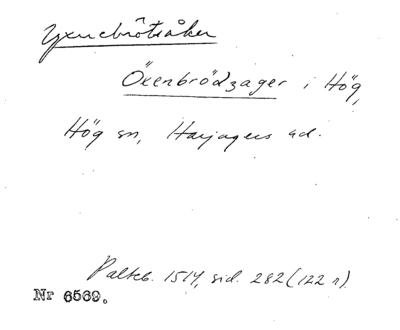 Yxnebrötsåker
Öxenbrödzager i Hög,
Hög sn, Harjagers hd.
Palteb. 1514, sid. 282 (122 r)
Nr 6569.